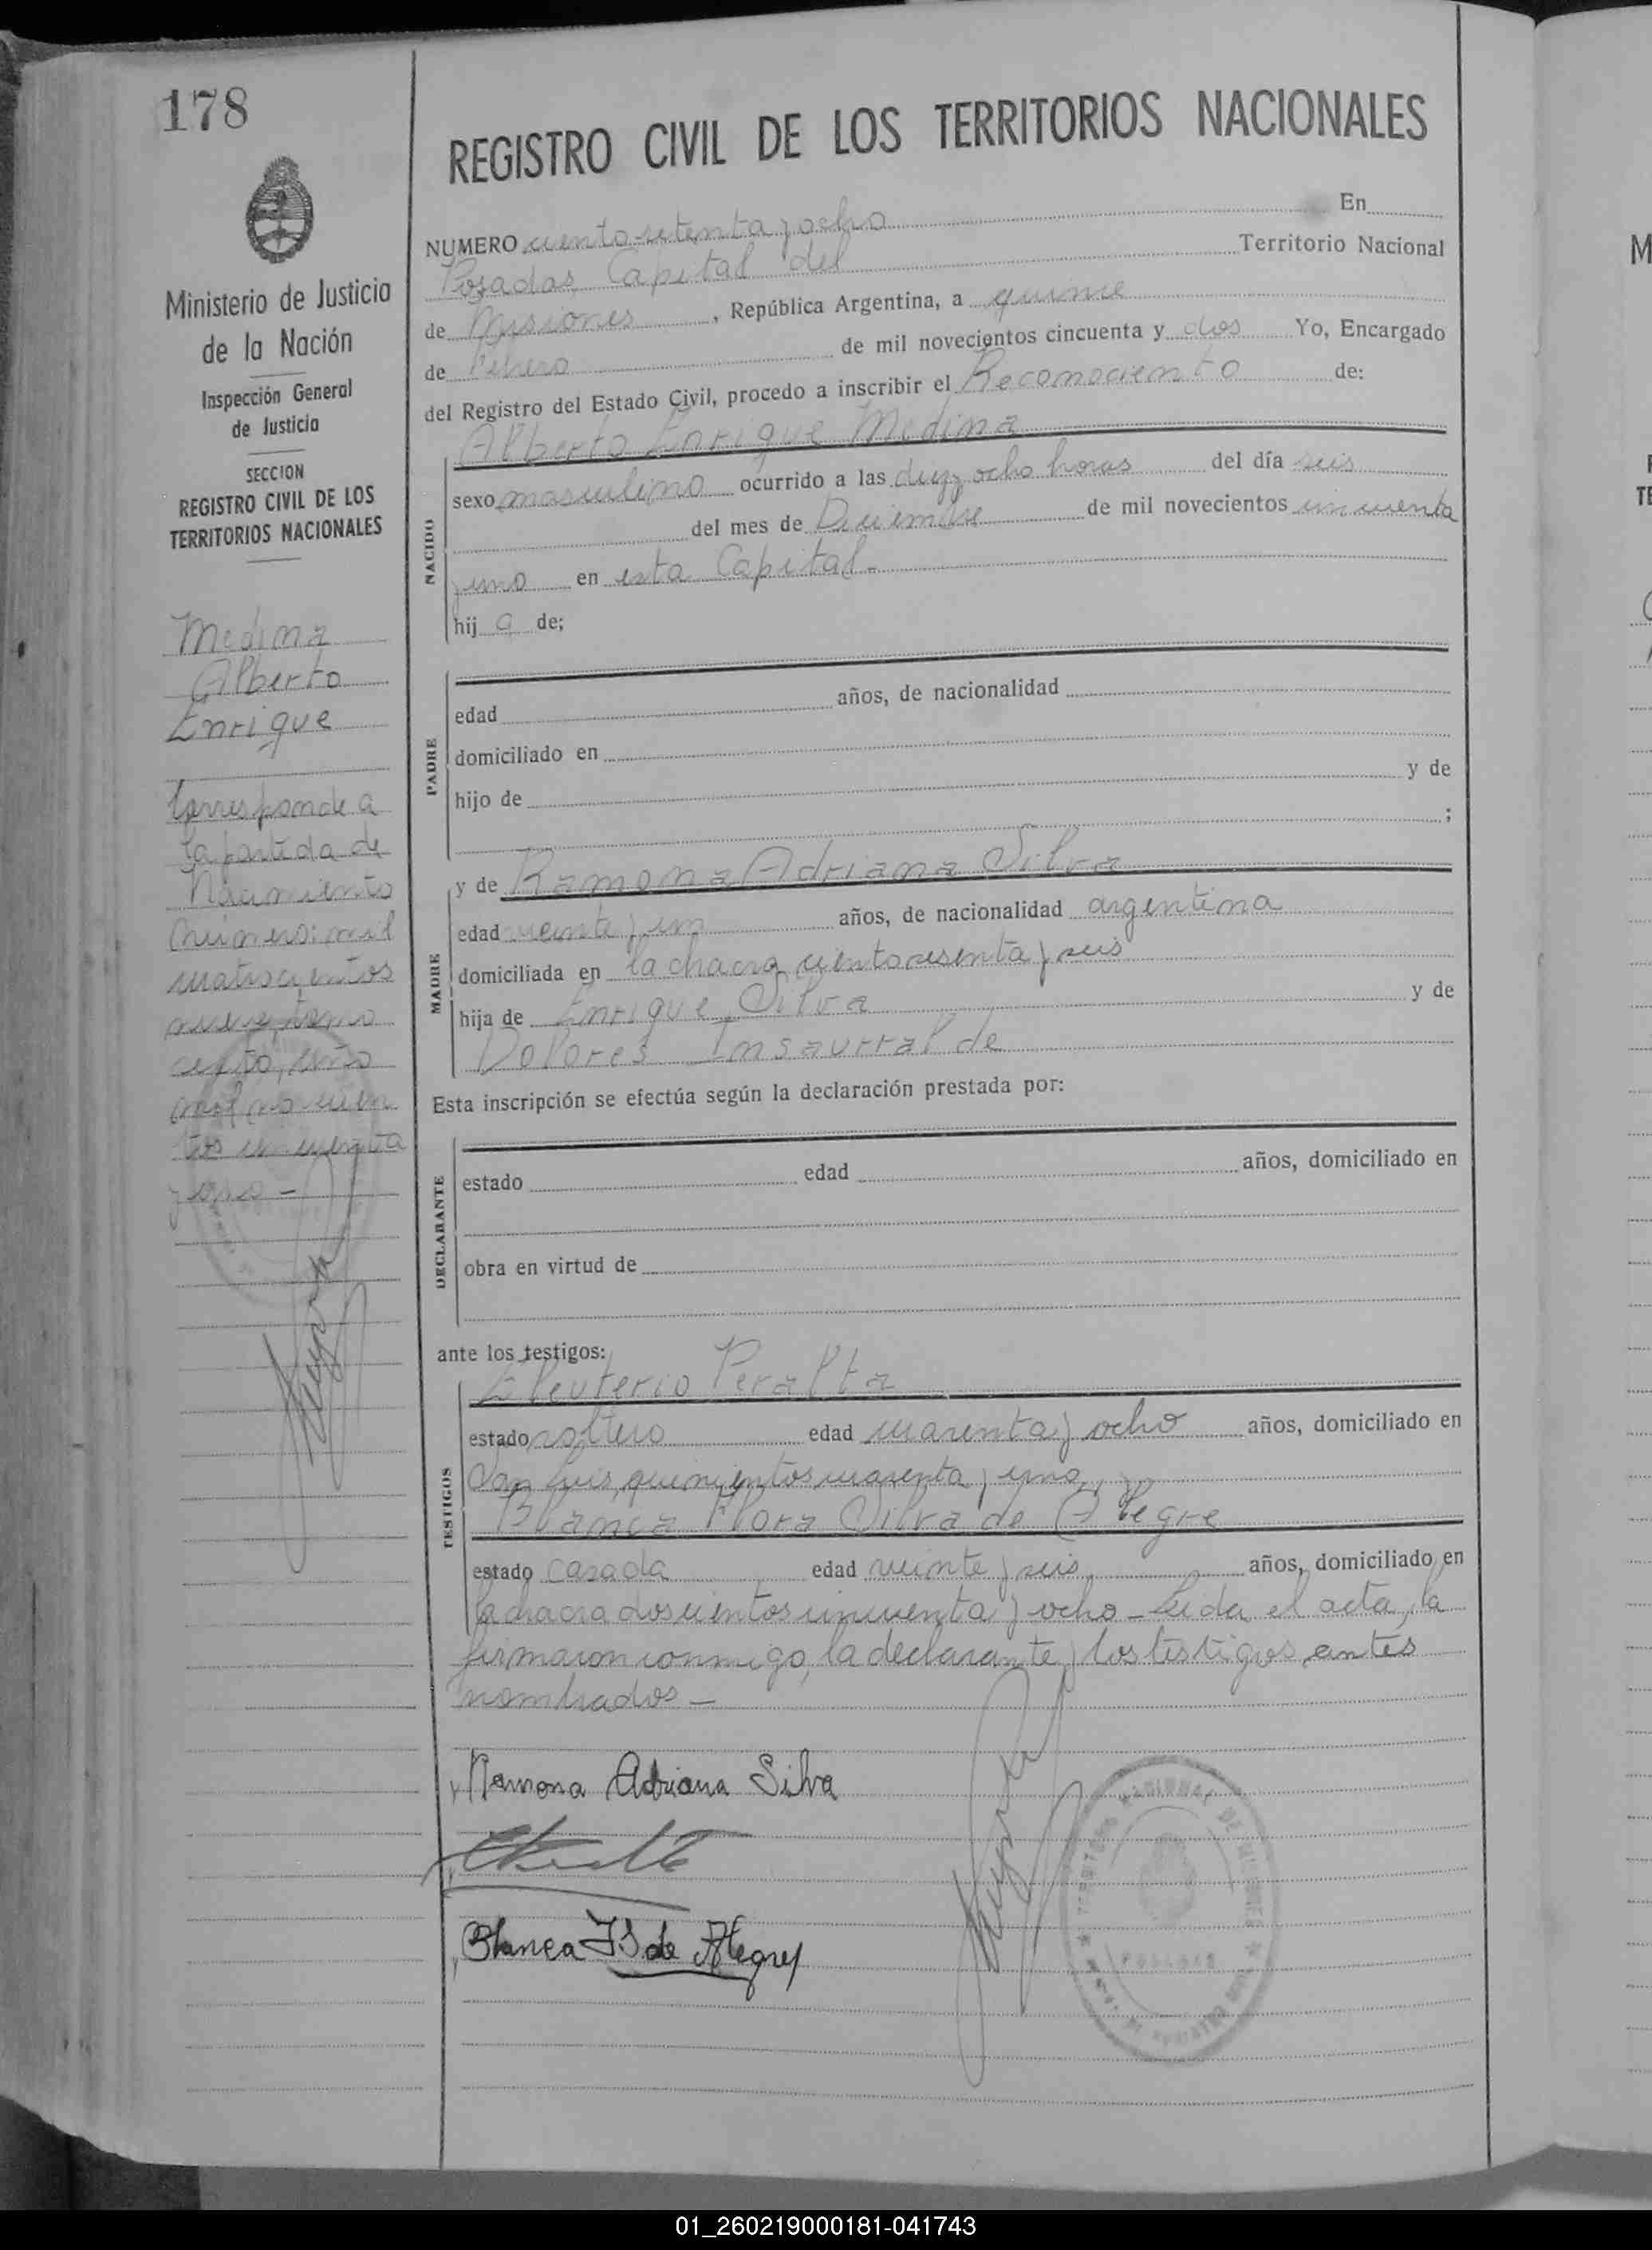 178
REGISTRO CIVIL DE LOS TERRITORIOS NACIONALES
Ministerio de Justicia
de la Nación
Inspección General
de Justicia
SECCION
REGISTRO CIVIL DE LOS
TERRITORIOS NACIONALES
Medina
Alberto
Enrique
Corresponde a
la partida de
Nacimiento
número: mil
cuatrocientos
nueve, tomo
año
mil novecien
tos cincuenta
y uno -
NUMERO ciento setenta y ocho En
Posadas, Capital del Territorio Nacional
de Misiones, República Argentina, a quince
de Febrero de mil novecientos cincuenta y dos Yo, Encargado
del Registro del Estado Civil, procedo a inscribir el Reconocimiento de:
Alberto Enrique Medina
NACIDO
sexo masculino ocurrido a las diez y ocho horas del día seis
del mes de Diciembre de mil novecientos cincuenta
y uno en esta Capital.-
hij o de;
PADRE
edad años, de nacionalidad
domiciliado en
hijo de y de
;
MADRE
y de Ramona Adriana Silva
edad veinte y un años, de nacionalidad argentina
domiciliada en la chacra ciento sesenta y seis
hija de Enrique Silva y de
Dolores Insaurralde
Esta inscripción se efectúa según la declaración prestada por:
DECLARANTE
estado edad años, domiciliado en
obra en virtud de
ante los testigos:
TESTIGOS
Eleuterio Peralta
estado soltero edad cuarenta y ocho años, domiciliado en
San Luis, quinientos cuarenta y uno, y
Blanca Flora Silva de Alegre
estado casada edad veinte y seis, años, domiciliado en
la chacra doscientos cincuenta y ocho - Leida el acta, la
firmaron conmigo, la declarante y los testigos antes
nombrados -
Ramona Adriana Silva
Blanca F S de Alegre
TERRITORIO NACIONAL DE MISIONES
POSADAS
01_260219000181-041743